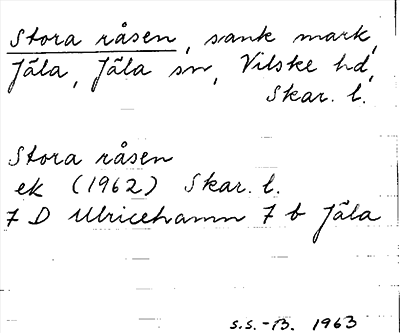 Stora råsen, sank mark,
Jäla, Jäla sn, Vilske hd,
Skar. l.
Stora råsen
ek (1962) Skar. l.
7 D Ulricehamn 7 b Jäla
S.S.-B. 1963